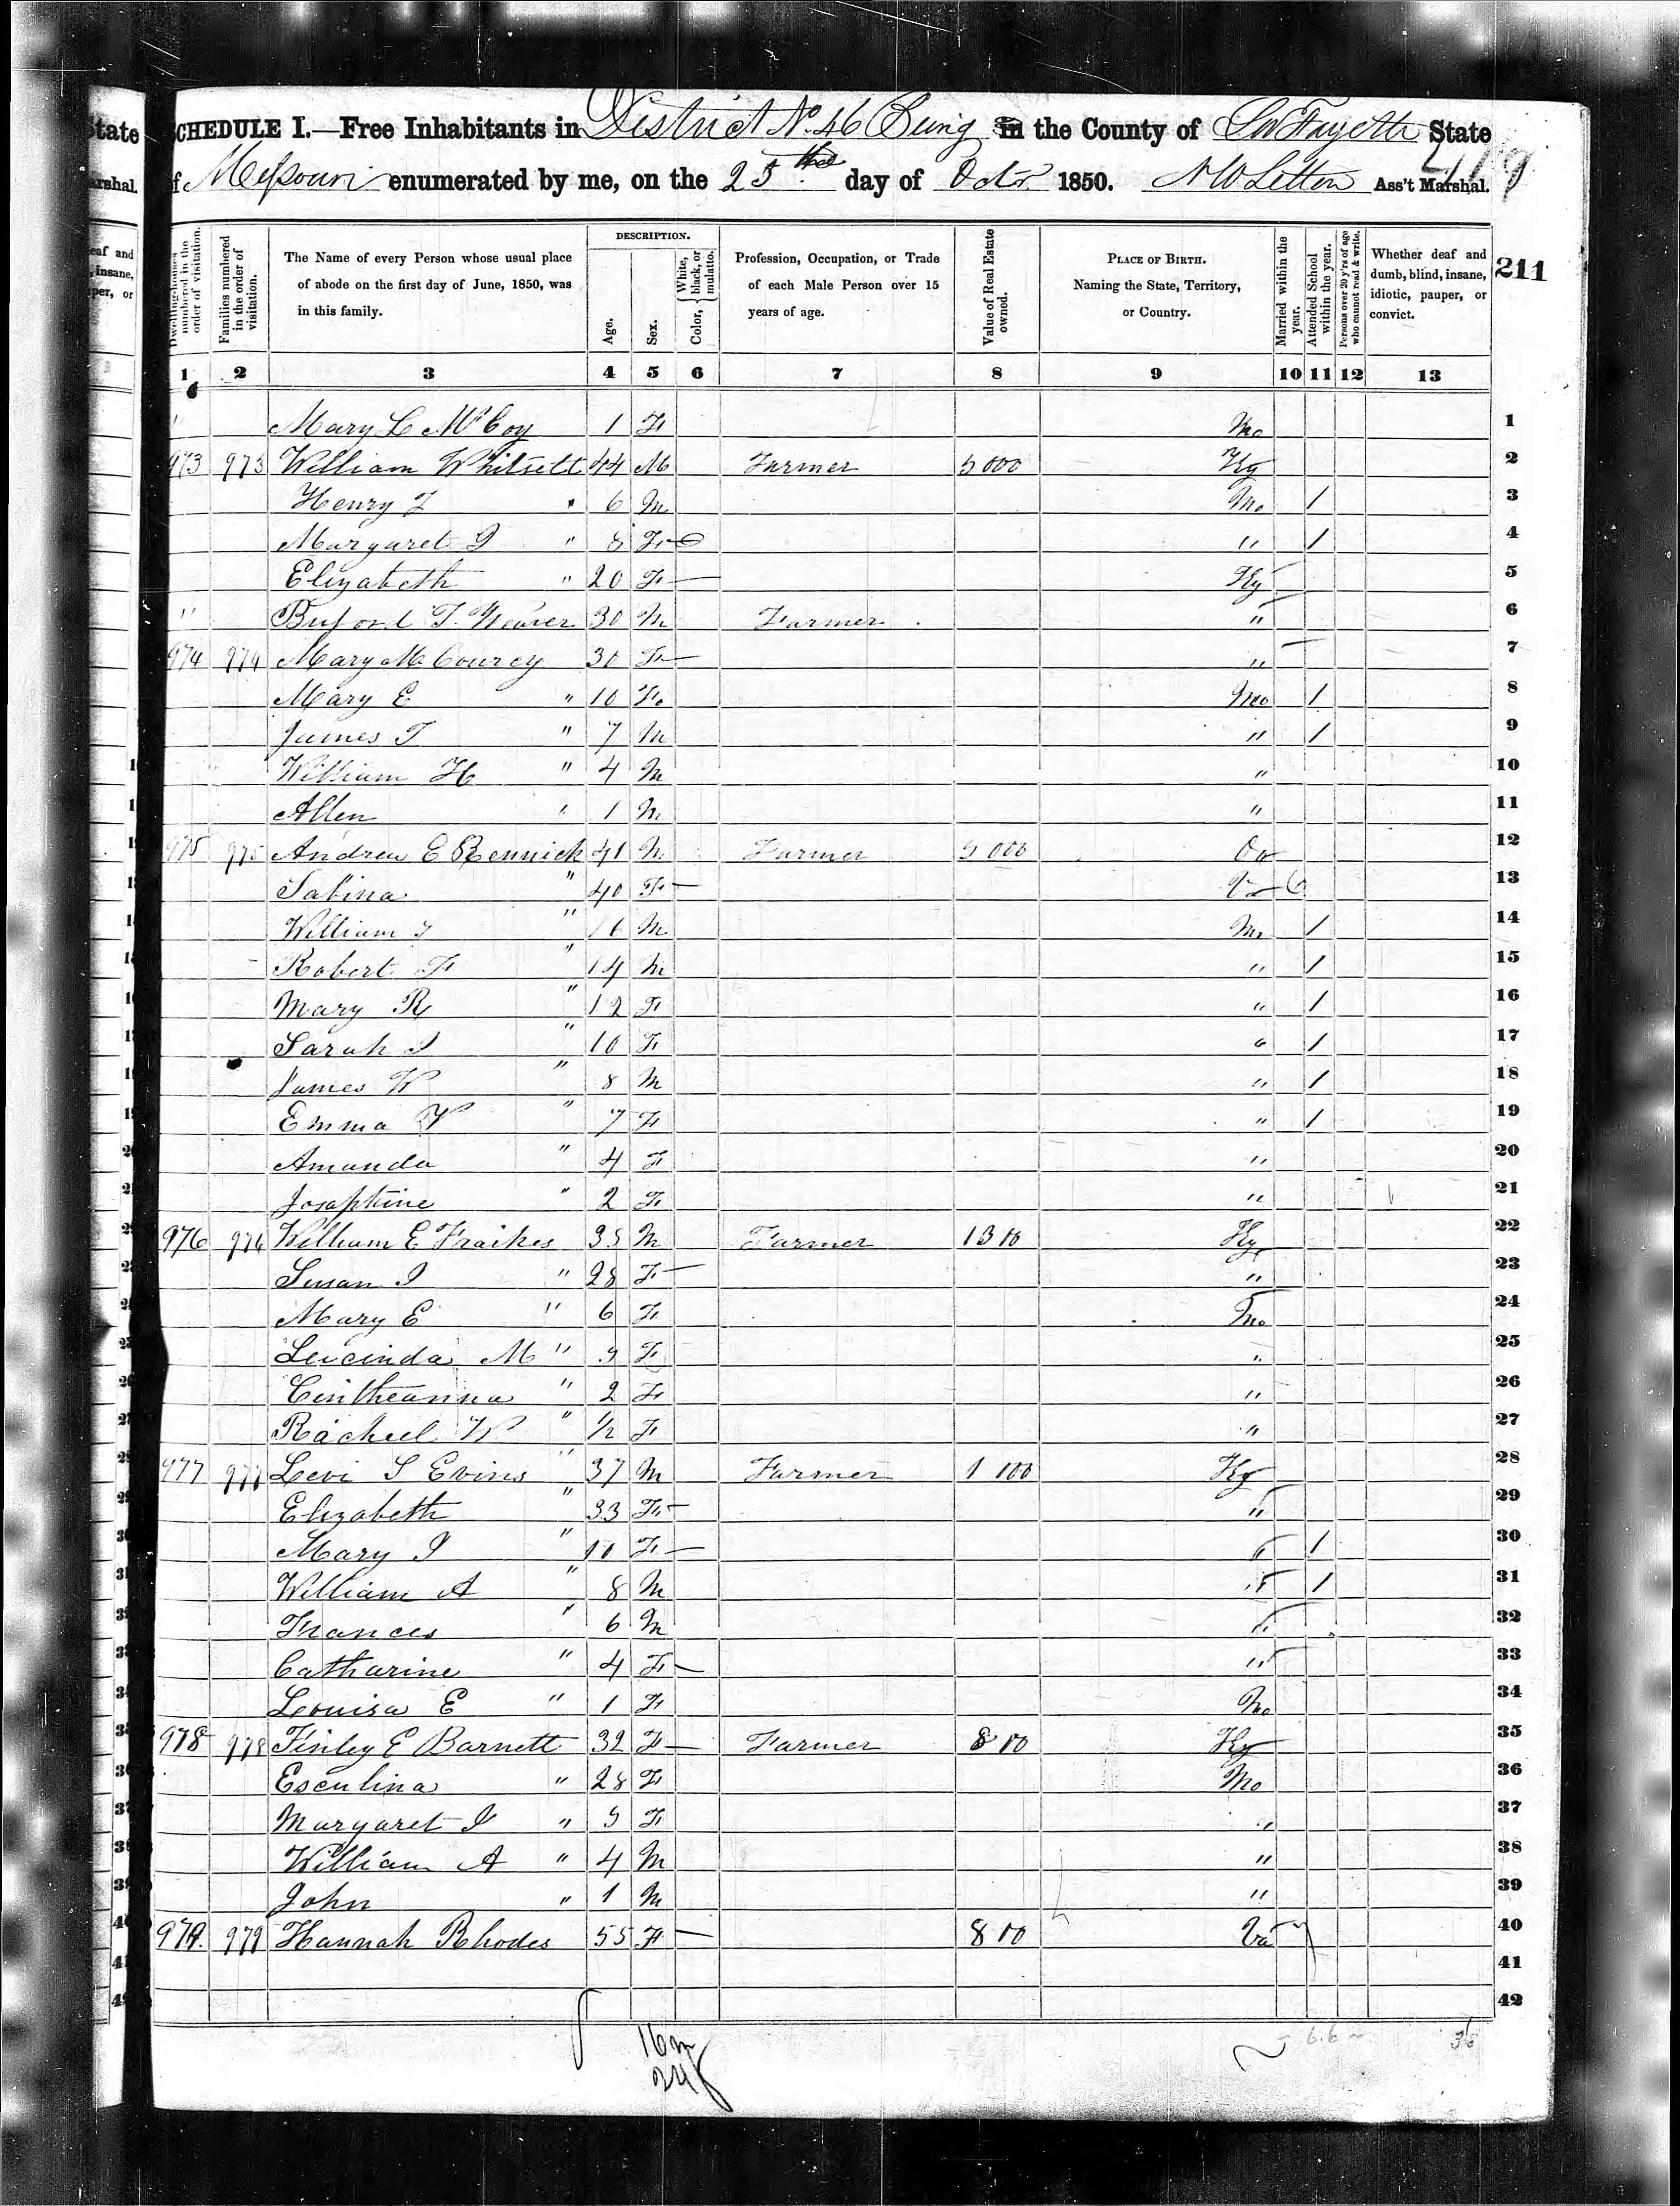 State
arshal.
eaf and
, insane,
per, or
SCHEDULE I.—Free Inhabitants in District No. 46 Being in the County of LaFayette State
of Missouri enumerated by me, on the 25th day of Octr 1850. N W Letton Ass't Marshal.
211
Dwelling-houses numbered in the order of visitation.
Families numbered in the order of visitation.
The Name of every Person whose usual place of abode on the first day of June, 1850, was in this family.
DESCRIPTION.
Age.
Sex.
Color, { White, black, or mulatto.
Profession, Occupation, or Trade of each Male Person over 15 years of age.
Value of Real Estate owned.
PLACE OF BIRTH. Naming the State, Territory, or Country.
Married within the year.
Attended School within the year.
Persons over 20 y'rs of age who cannot read & write.
Whether deaf and dumb, blind, insane, idiotic, pauper, or convict.
1 2 3 4 5 6 7 8 9 10 11 12 13
" Mary L McCoy 1 F Mo 1
973 973 William Whitsett 44 M Farmer 5000 Ky 2
Henry T " 6 M Mo 1 3
Margaret J " 8 F " 1 4
Elizabeth " 20 F Ky 5
" Buford T. Weaver 30 M Farmer " 6
974 974 Mary McCourcy 30 F " 7
Mary E " 10 F Mo 1 8
James T " 7 M " 1 9
William H " 4 M " 10
Allen " 1 M " 11
975 975 Andrew E Rennick 41 M Farmer 5000 12
Sabina " 40 F 13
William " 16 M Mo 1 14
Robert F " 14 M " 1 15
Mary R " 12 F " 1 16
Sarah J " 10 F " 1 17
James W " 8 M " 1 18
Emma V " 7 F " 1 19
Amanda " 4 F " 20
Josaphine " 2 F " 21
976 976 William E Fraikes 35 M Farmer 1300 Ky 22
Susan J " 28 F " 23
Mary E " 6 F Mo 24
Lucinda M " F " 25
Cintheanna " 2 F " 26
Racheel W " 1/2 F " 27
977 977 Levi S Evins " 37 M Farmer 1100 Ky 28
Elizabeth " 33 F " 29
Mary J " F " 1 30
William A " 8 M " 1 31
Frances " 6 M " 32
Catharine " 4 F " 33
Louisa E " 1 F Mo 34
978 978 Finley E Barnett 32 F Farmer 800 Ky 35
Esculina " 28 F Mo 36
Margaret J " 5 F " 37
William A " 4 M " 38
John " 1 M " 39
979. 979 Hannah Rhodes 55 F 800 Va 40
41
42
16m
24f